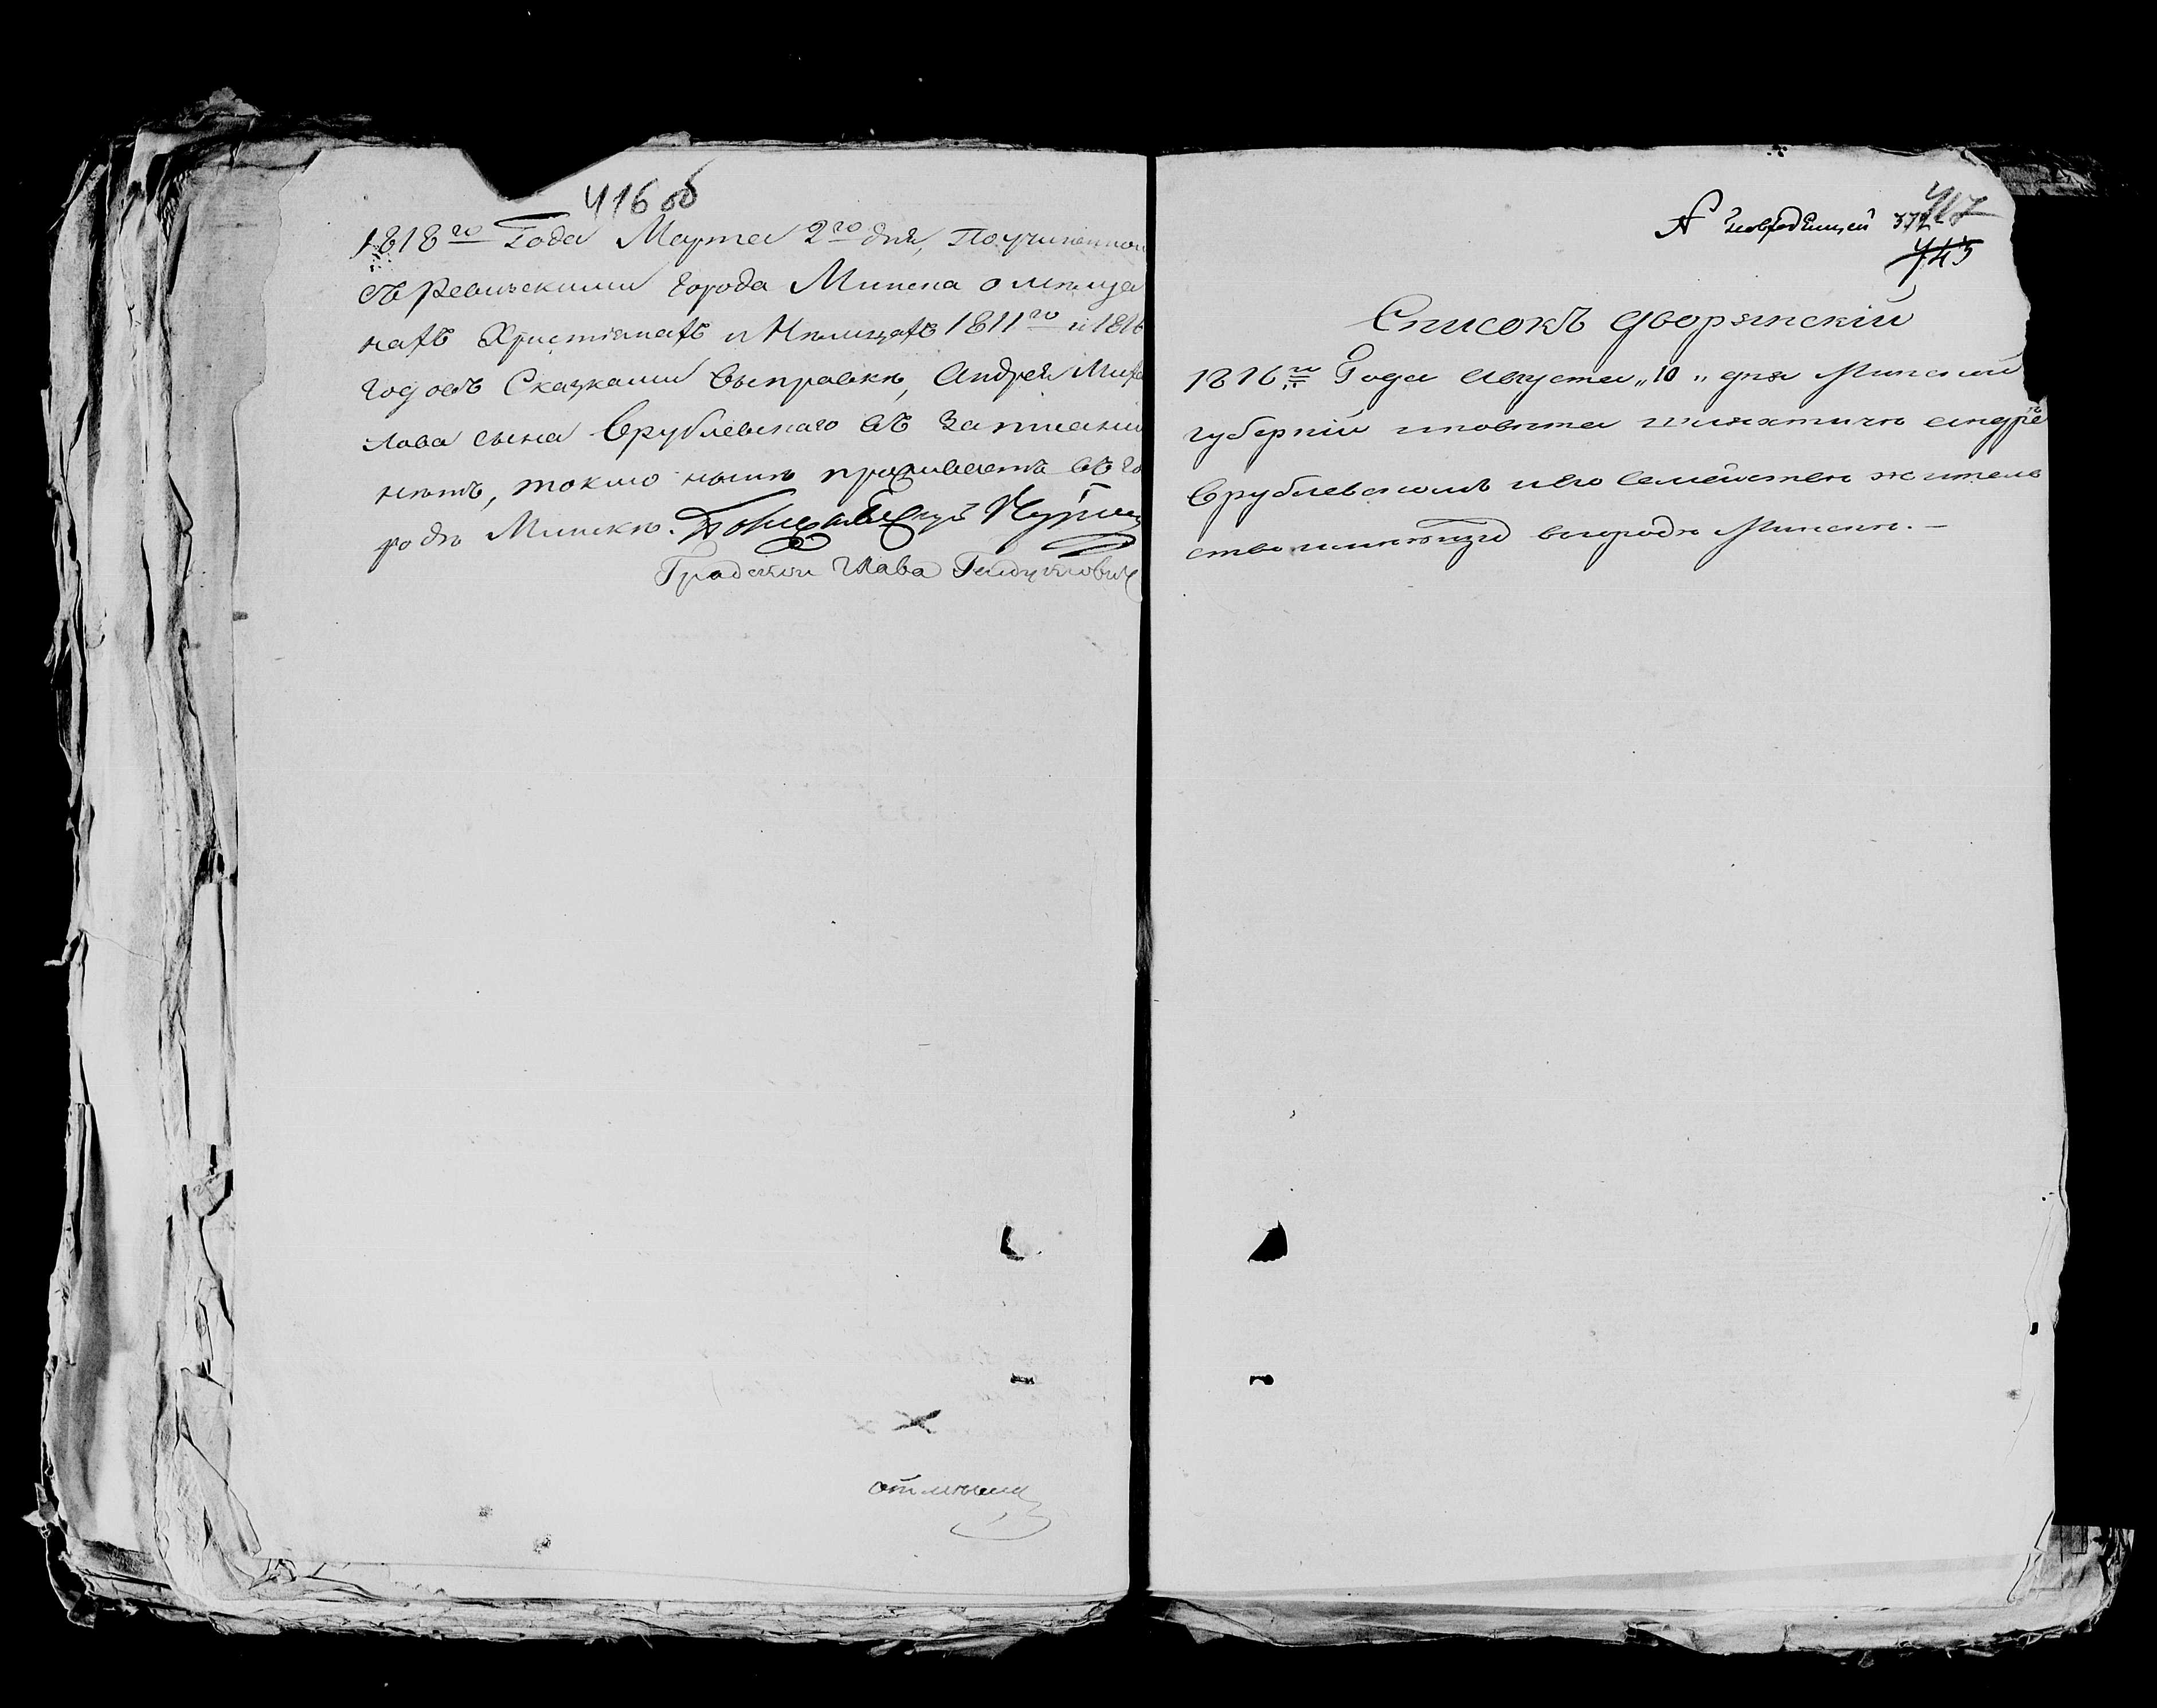 416 об
1818го Года Марта 2го дня, По учиненной
съ Ревискими города Минска о меща
нахъ Христіянахъ и Немцахъ 1811го и 1816
годовъ Сказками выправке, Андрей Михай
лова сына Врублевскаго въ записаніи
нетъ, токмо ныне проживаетъ въ го
роде Минске.
Градской Глава
417
372
743
Списокъ дворянскій
1816го Года августа „10„ дня Минской
губерніи и повета шляхтиче андре
Врублевскомъ и его семействе житель
ство имеющія вгороде Минске. —